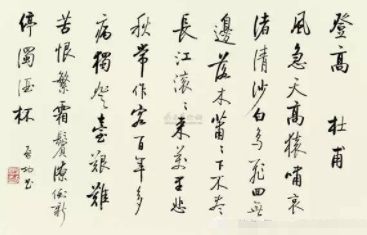 登高 杜甫
風急天高猿嘯哀
渚清沙白鳥飛回無
邊落木蕭〻下不盡
長江滾〻來萬里悲
秋常作客百年多
病獨登臺艱難
苦恨繁霜鬢潦倒新
停濁酒杯 啟功書